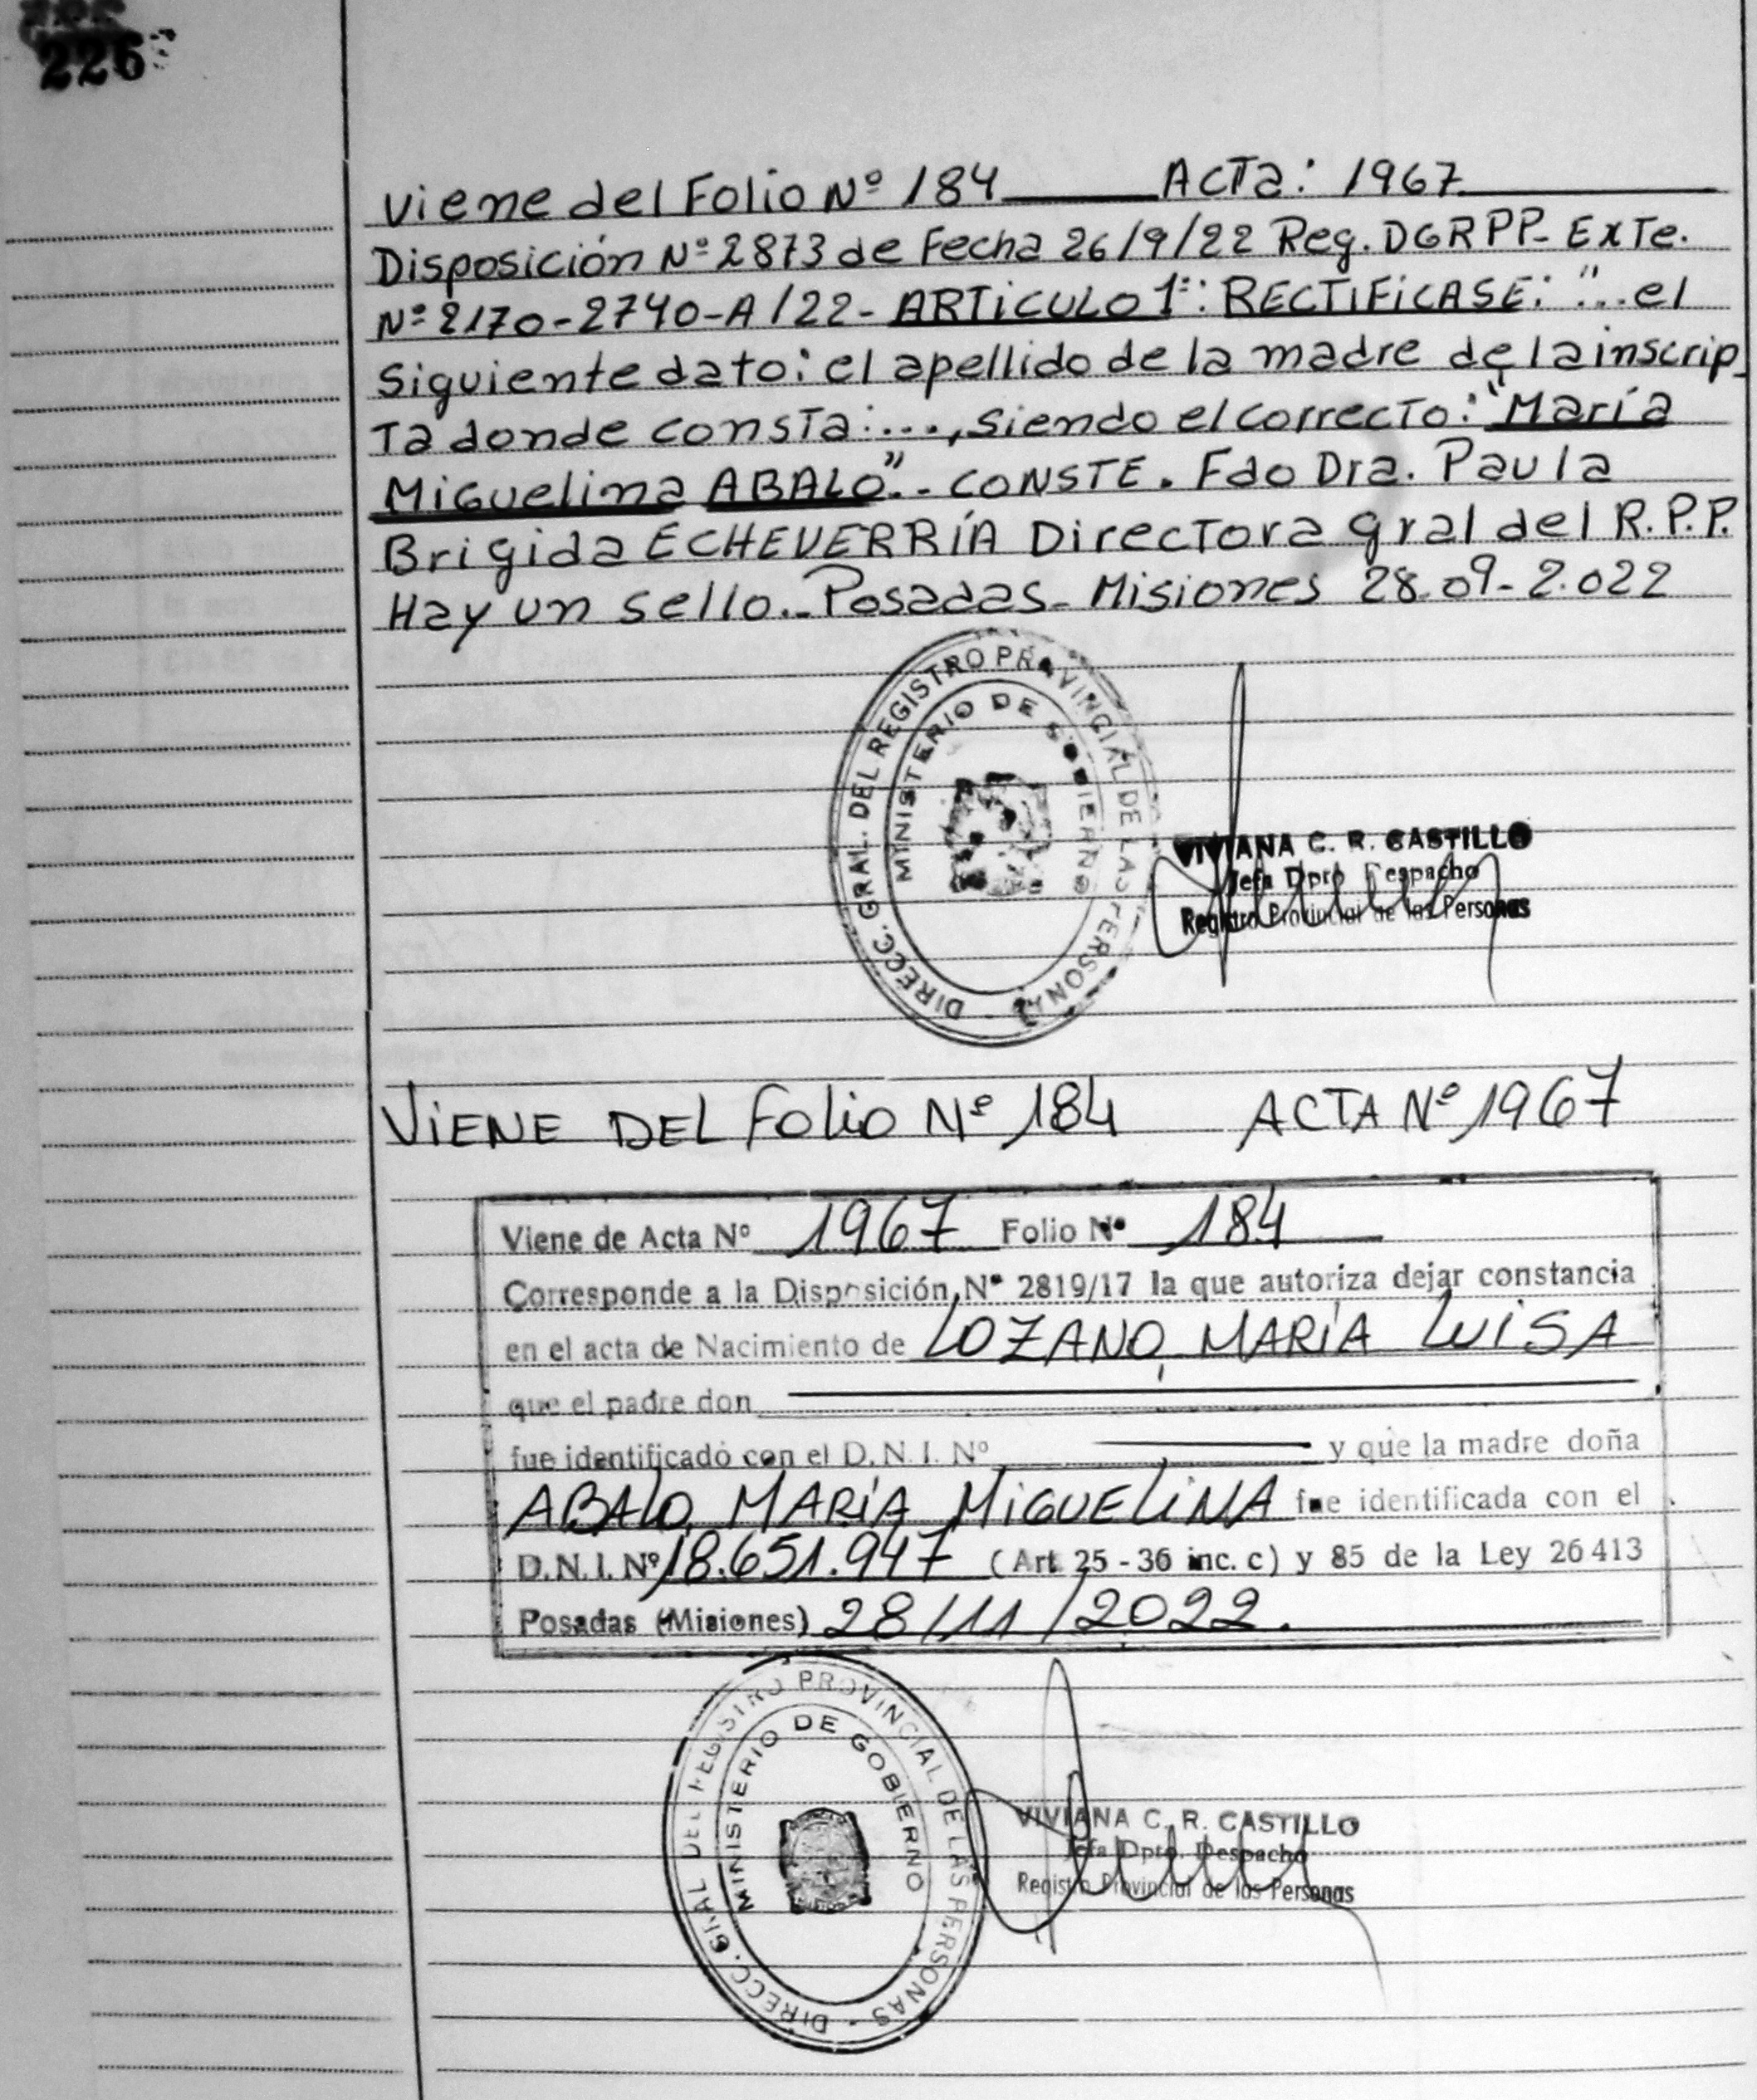 226
Viene del Folio Nº 184 ACTa: 1967
Disposición Nº 2873 de Fecha 26/9/22 Reg. DGRPP- ExTe.
Nº 2170-2740-A/22- ARTICULO 1º: RECTIFICASE: "...el
Siguiente dato: el apellido de la madre de la inscrip_
Ta donde consTa:..., siendo el correcTo: "María
Miguelina ABALO".- CONSTE. Fdo Dra. Paula
Brigida ECHEVERRÍA DirecTora gral del R.P.P.
Hay un sello.- Posadas- Misiones 28.09-2.022
DIRECC. GRAL. DEL REGISTRO PROVINCIAL DE LAS PERSONAS
MINISTERIO DE GOBIERNO
VIVIANA C. R. CASTILLO
Jefa Dpto Despacho
Registro Provincial de las Personas
VIENE DEL FOLIO Nº 184 ACTA Nº 1967
Viene de Acta Nº 1967 Folio Nº 184
Corresponde a la Disposición Nº 2819/17 la que autoriza dejar constancia
en el acta de Nacimiento de LOZANO, MARÍA LUISA
que el padre don
fue identificado con el D.N.I. Nº y que la madre doña
ABALO, MARÍA MIGUELINA fue identificada con el
D.N.I. Nº 18.651.947 (Art. 25 - 36 inc. c) y 85 de la Ley 26413
Posadas (Misiones) 28/11/2022.
DIRECC. GRAL DEL REGISTRO PROVINCIAL DE LAS PERSONAS
MINISTERIO DE GOBIERNO
VIVIANA C. R. CASTILLO
Jefa Dpto. Despacho
Registro Provincial de las Personas